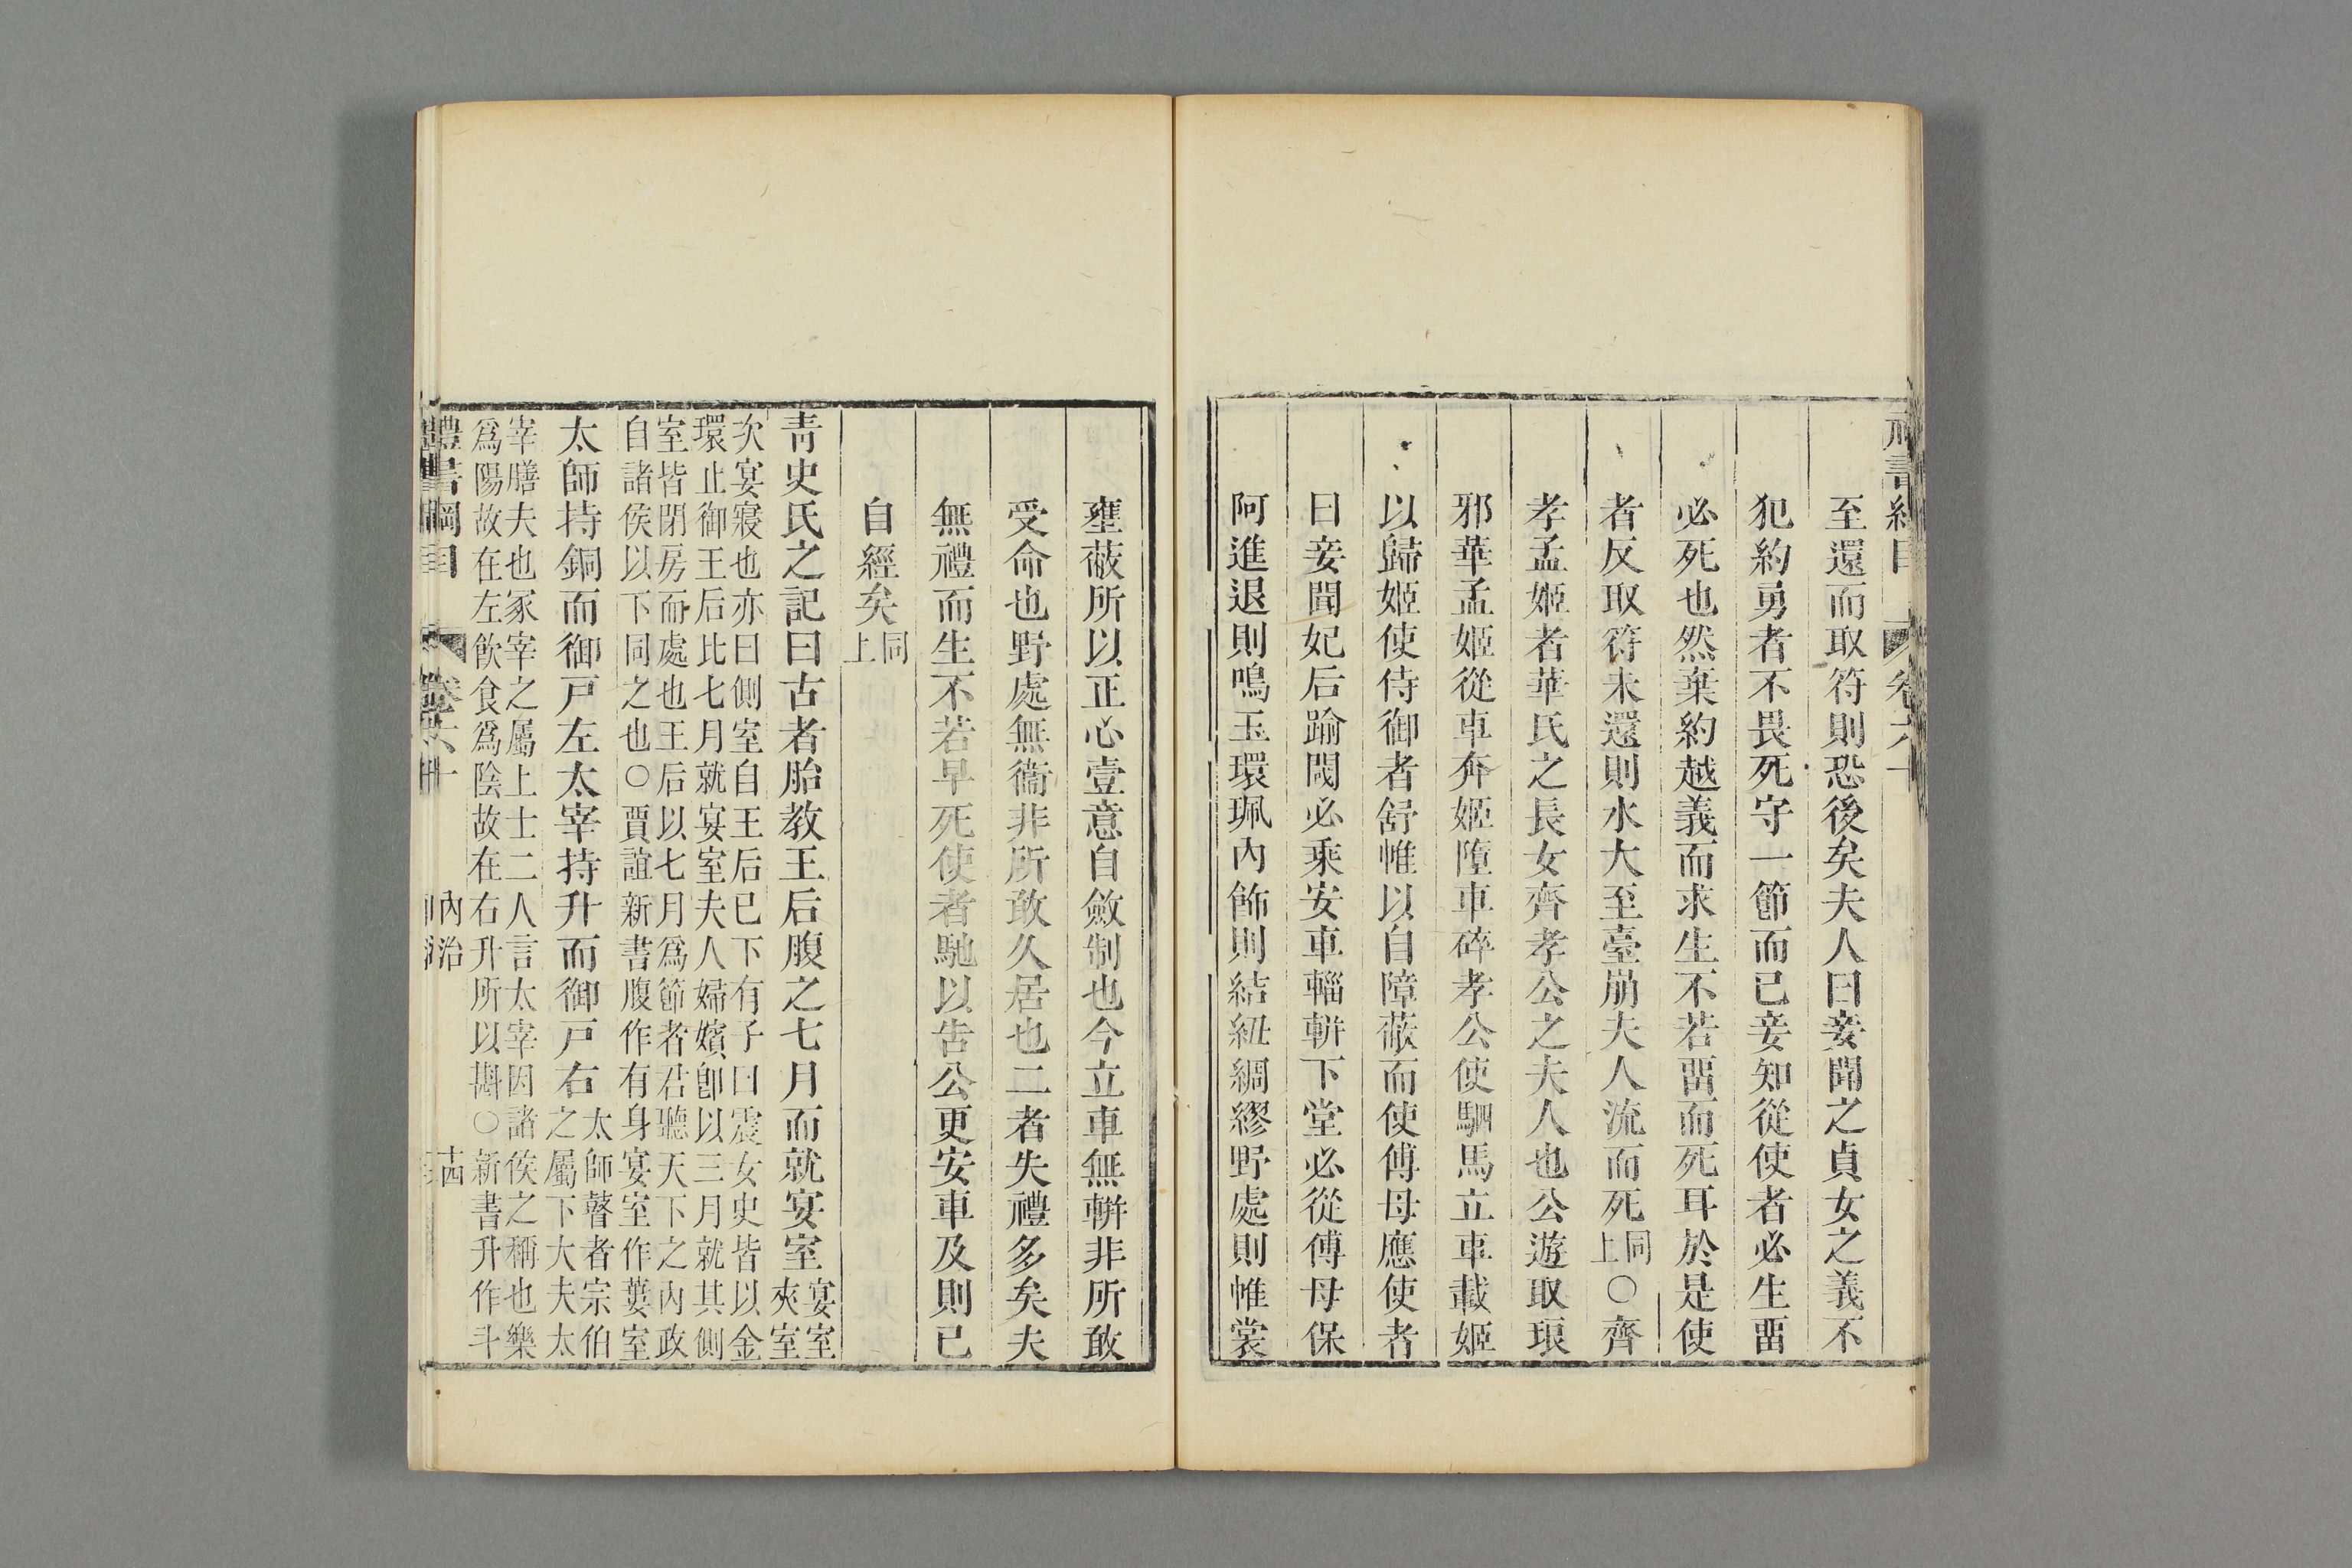 至還而取符則恐後矣夫人曰妾聞之貞女之義不
犯約勇者不畏死守一節而已妾知從使者必生畱
必死也然棄約越義而求生不若畱而死耳於是使
者反取符未還則水大至臺崩夫人流而死同上○齊
孝孟姬者華氏之長女齊孝公之夫人也公遊取琅
邪華孟姬從車奔姬墮車碎孝公使駟馬立車載姬
以歸姬使侍御者舒帷以自障蔽而使傅母應使者
曰妾聞妃后踰閾必乘安車輜軿下堂必從傅母保
阿進退則鳴玉環珮內飾則結紐綢繆野處則帷裳
壅蔽所以正心壹意自斂制也今立車無軿非所敢
受命也野處無衞非所敢久居也二者失禮多矣夫
無禮而生不若早死使者馳以告公更安車及則已
自經矣同上
靑史氏之記曰古者胎教王后腹之七月而就宴室宴室夾室
次宴寢也亦曰側室自王后已下有子曰震女史皆以金
環止御王后比七月就宴室夫人婦嬪卽以三月就其側
室皆閉房而處也王后以七月爲節者君聽天下之內政
自諸侯以下同之也○賈誼新書腹作有身宴室作蔞室
太師持銅而御戸左太宰持升而御戸右太師瞽者宗伯之屬下大夫太
宰膳夫也冢宰之屬上士二人言太宰因諸侯之稱也樂
爲陽故在左飮食爲陰故在右升所以㪺○新書升作斗
禮書綱目 卷六十 內治 十四